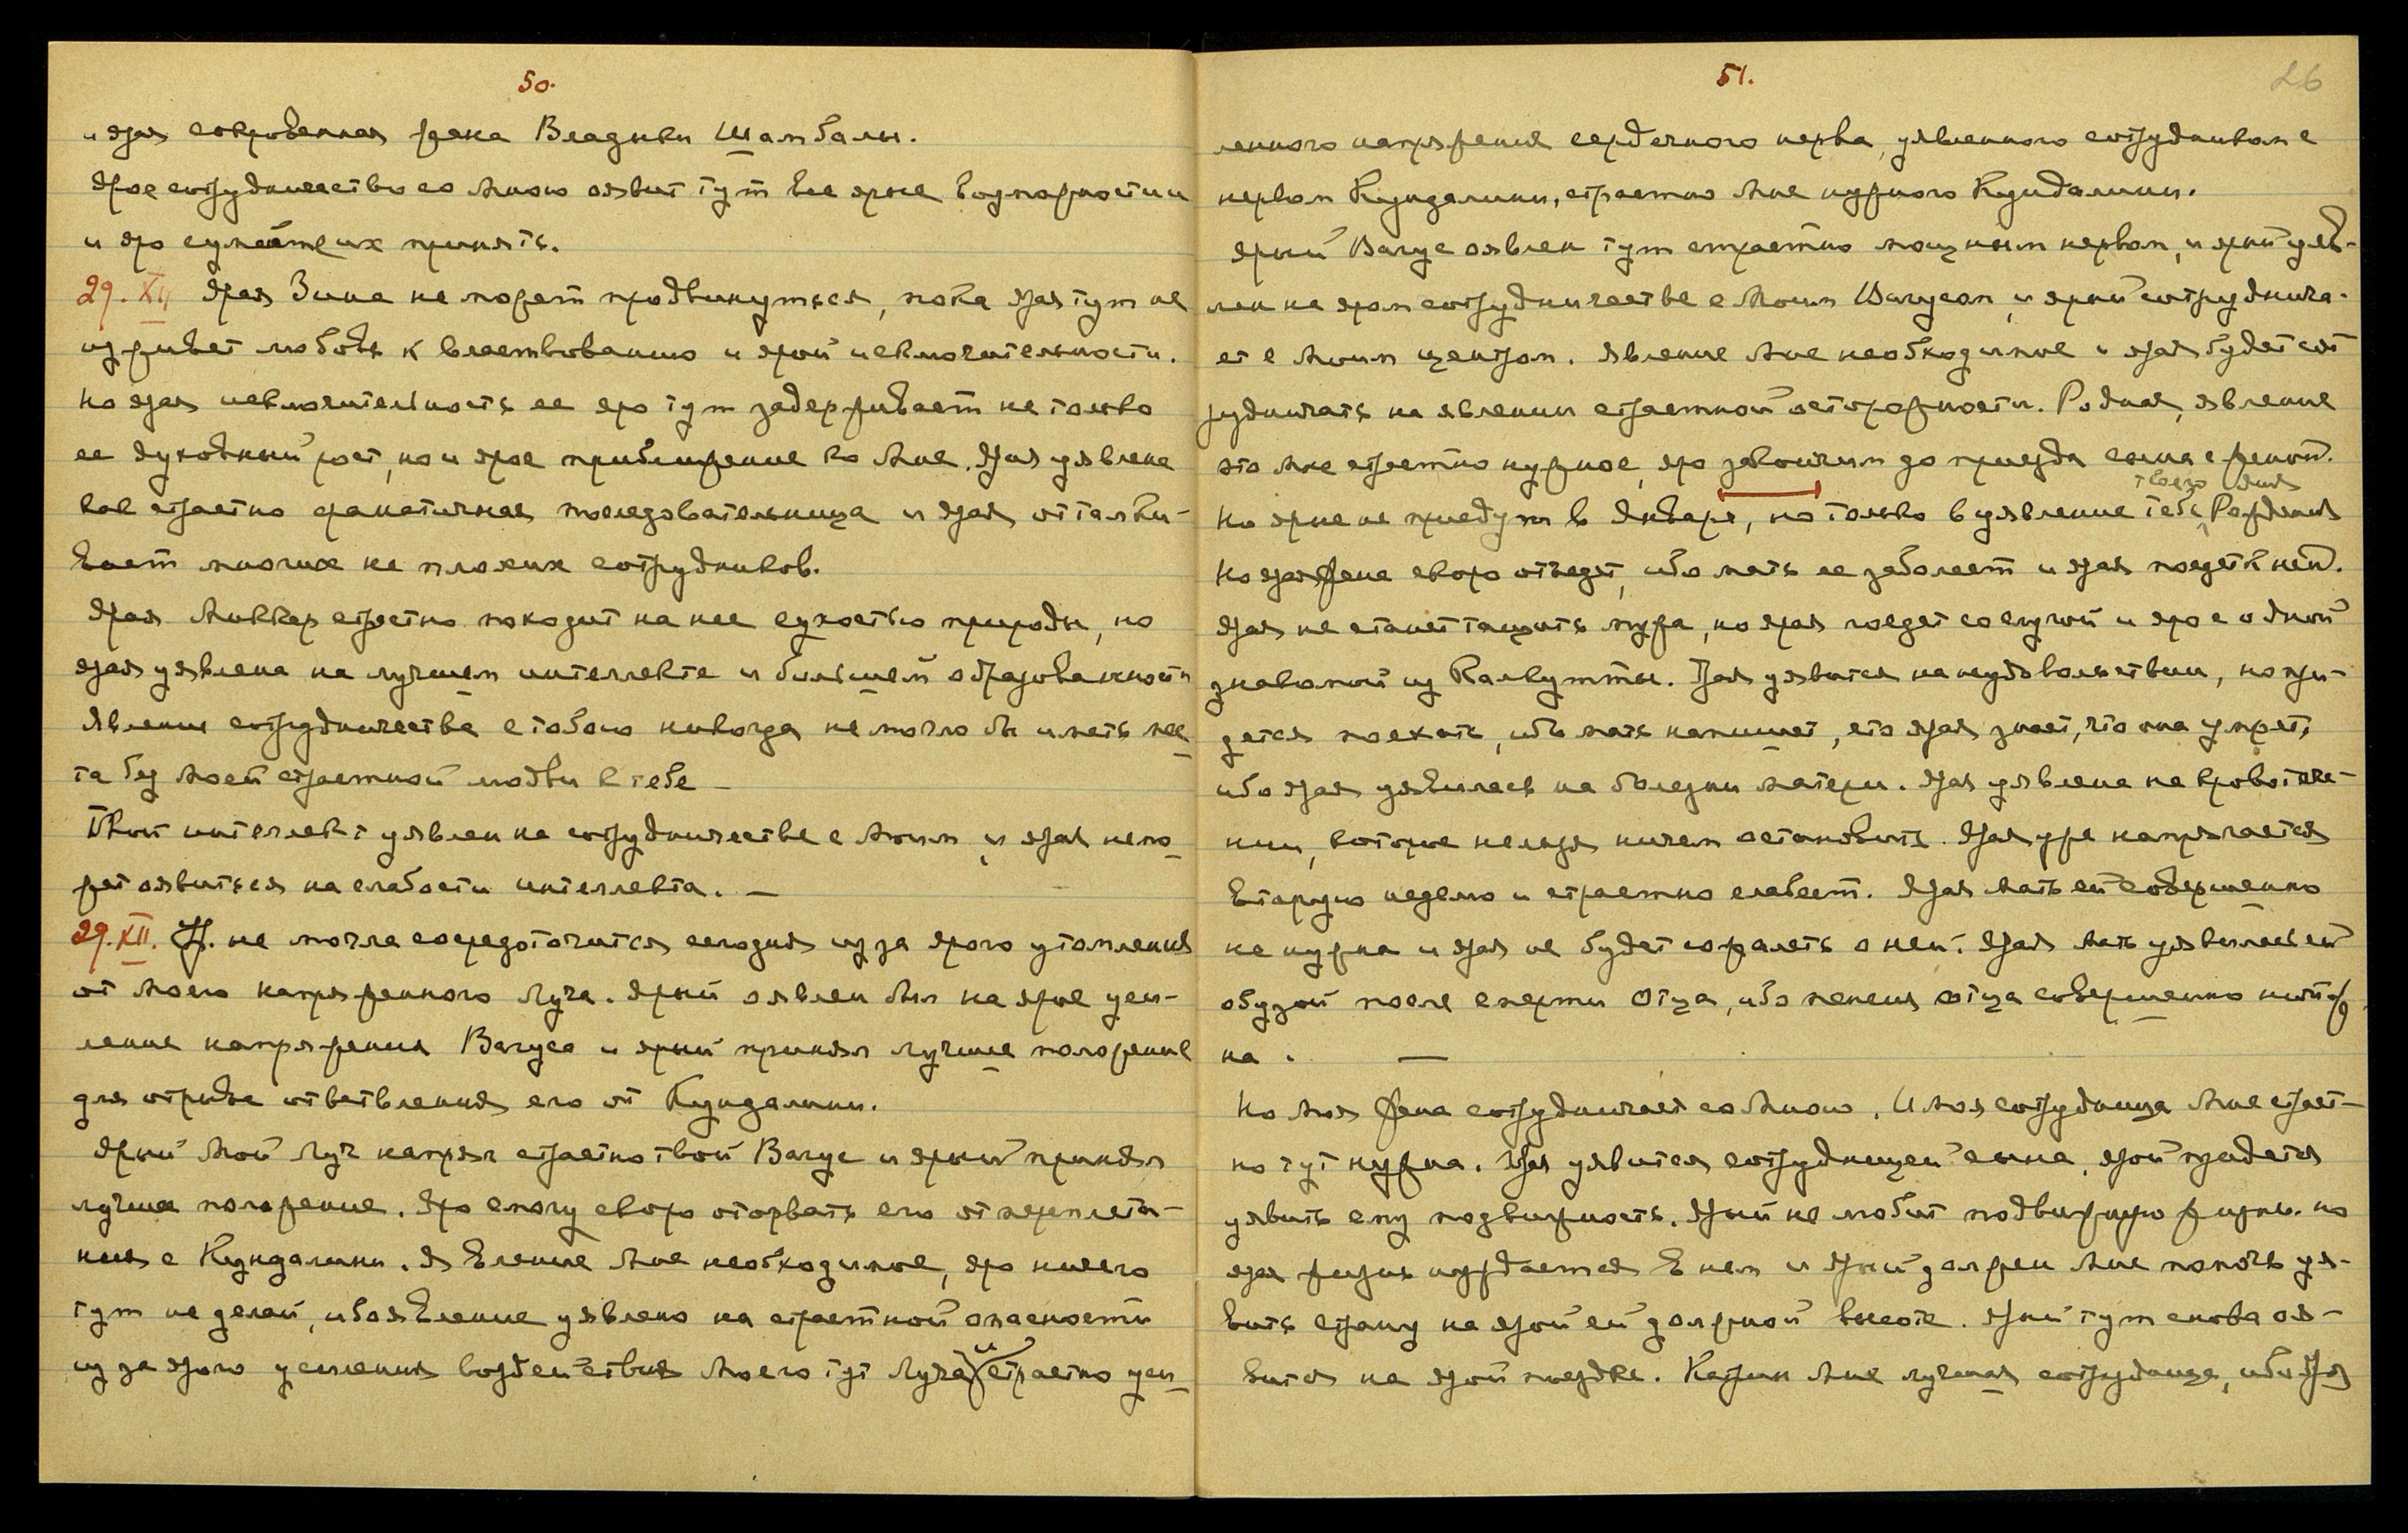 50.
и ярая сокровенная жена Владыки Шамбалы.
Ярое сотрудничество со Мною оявит тут все ярые возможности и
и яро сумеет их принять.
29. XII Ярая Зина не может продвинуться, пока ярая тут не
изживет любовь к властвованию и ярой исключительности.
Но ярая исключительность ее яро тут задерживает не только
ее духовный рост, но и ярое приближение ко Мне. Ярая уявлена
как страстно фанатичная последовательница и ярая отталки-
вает многих не плохих сотрудников.
Ярая страстно походит на нее сухостью природы, но
ярая уявлена на лучшем интеллекте и большей образованности
Явление сотрудничества с тобою никогда не могло бы иметь мес
та без моей страстной любви к тебе –
Твой интеллект уявлен на сотрудничестве с Моим и ярая не мо
жет оявиться на слабости интеллекта. –
29. XII. Я. не могла сосредоточиться сегодня из за ярого утомления
от Моего напряженного Луча. Ярый оявлен был на ярое уси-
ление напряжения Вагуса и ярый принял лучшее положение
для отрыва ответвления его от Кундалини.
Ярый Мой Луч напряг страстно твой Вагус и ярый принял
лучшее положение. Яро смогу скоро оторвать его от переплета-
ния с Кундалини. Явление Мне необходимое, яро ничего
тут не делай, ибо явление уявлено на страстной опасности
из за ярого усиления воздействия Моего тут Луча и страстно уси
51.
26
ленного напряжения сердечного нерва, уявленного сотрудником с
нервом Кундалини, страстно Мне нужного Кундалини.
Ярый Вагус оявлен тут страстно мощным нервом, и ярый уяв-
лен на яром сотрудничестве с Моим Вагусом и ярый сотруднича-
ет с Моим центром. Явление Мне необходимое и ярая будет сот
рудничать на явлении страстной осторожности. Родная, явление
это Мне страстно нужное, яро закончим до приезда сына с женой.
твоего дня
Но ярые не приедут в Январе, но только в уявление тебе Рождения
Но ярая жена скоро отъедет, ибо мать ее заболеет и ярая поедет к ней.
Ярая не станет тащить мужа, но ярая поедет со слугой и яро с одной
знакомой из Калькутты. Ярая уявится на неудовольствии, но при-
дется поехать, ибо мать напишет, что ярая знает, что она умрет,
ибо ярая уявилась на болезни матери. Ярая уявлена на кровотече-
нии, которое нельзя ничем остановить. Ярая уже напрягается
вторую неделю и страстно слабеет. Ярая мать ей совершенно
не нужна и ярая не будет сожалеть о ней. Ярая мать уявилась ей
обузой после смерти Отца, ибо пенсия отца совершенно ничтож
на. —
Но Моя жена сотрудничает со Мною. И Моя сотрудница Мне страст-
но тут нужна. Ярая уявится сотрудницей сына, ярой придется
уявить ему подвижность. Ярый не любит подвижную жизнь. но
ярая жизнь нуждается в нем и ярый должен Мне помочь уя-
вить страну на ярой ей должной высоте. Ярый тут снова оя-
вится на ярой поездке. Катрин Мне лучшая сотрудница, ибо ярая